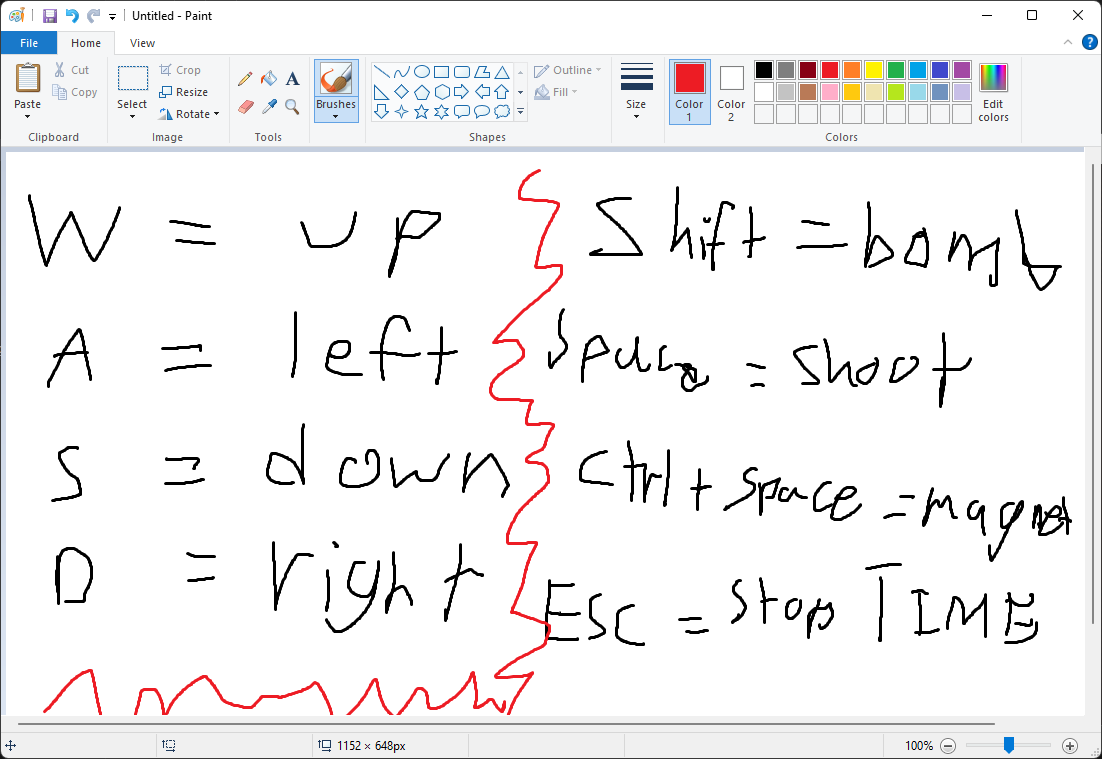 Untitled - Paint
File Home View
Paste
Cut
Copy
Clipboard
Select
Crop
Resize
Rotate
Image
A
Tools
Brushes
Outline
Fill
Shapes
Size
Color 1
Color 2
Edit colors
Colors
W = up
A = left
S = down
D = right
Shift = bomb
Space = shoot
Ctrl + space = magnet
ESC = stop TIME
1152 × 648px
100%